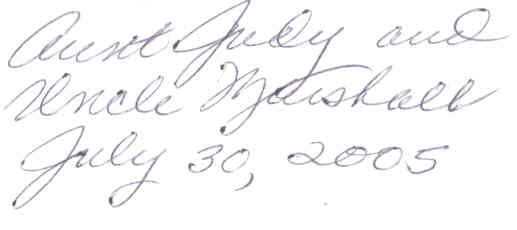 Aunt Judy and
Uncle Marshall
July 30, 2005